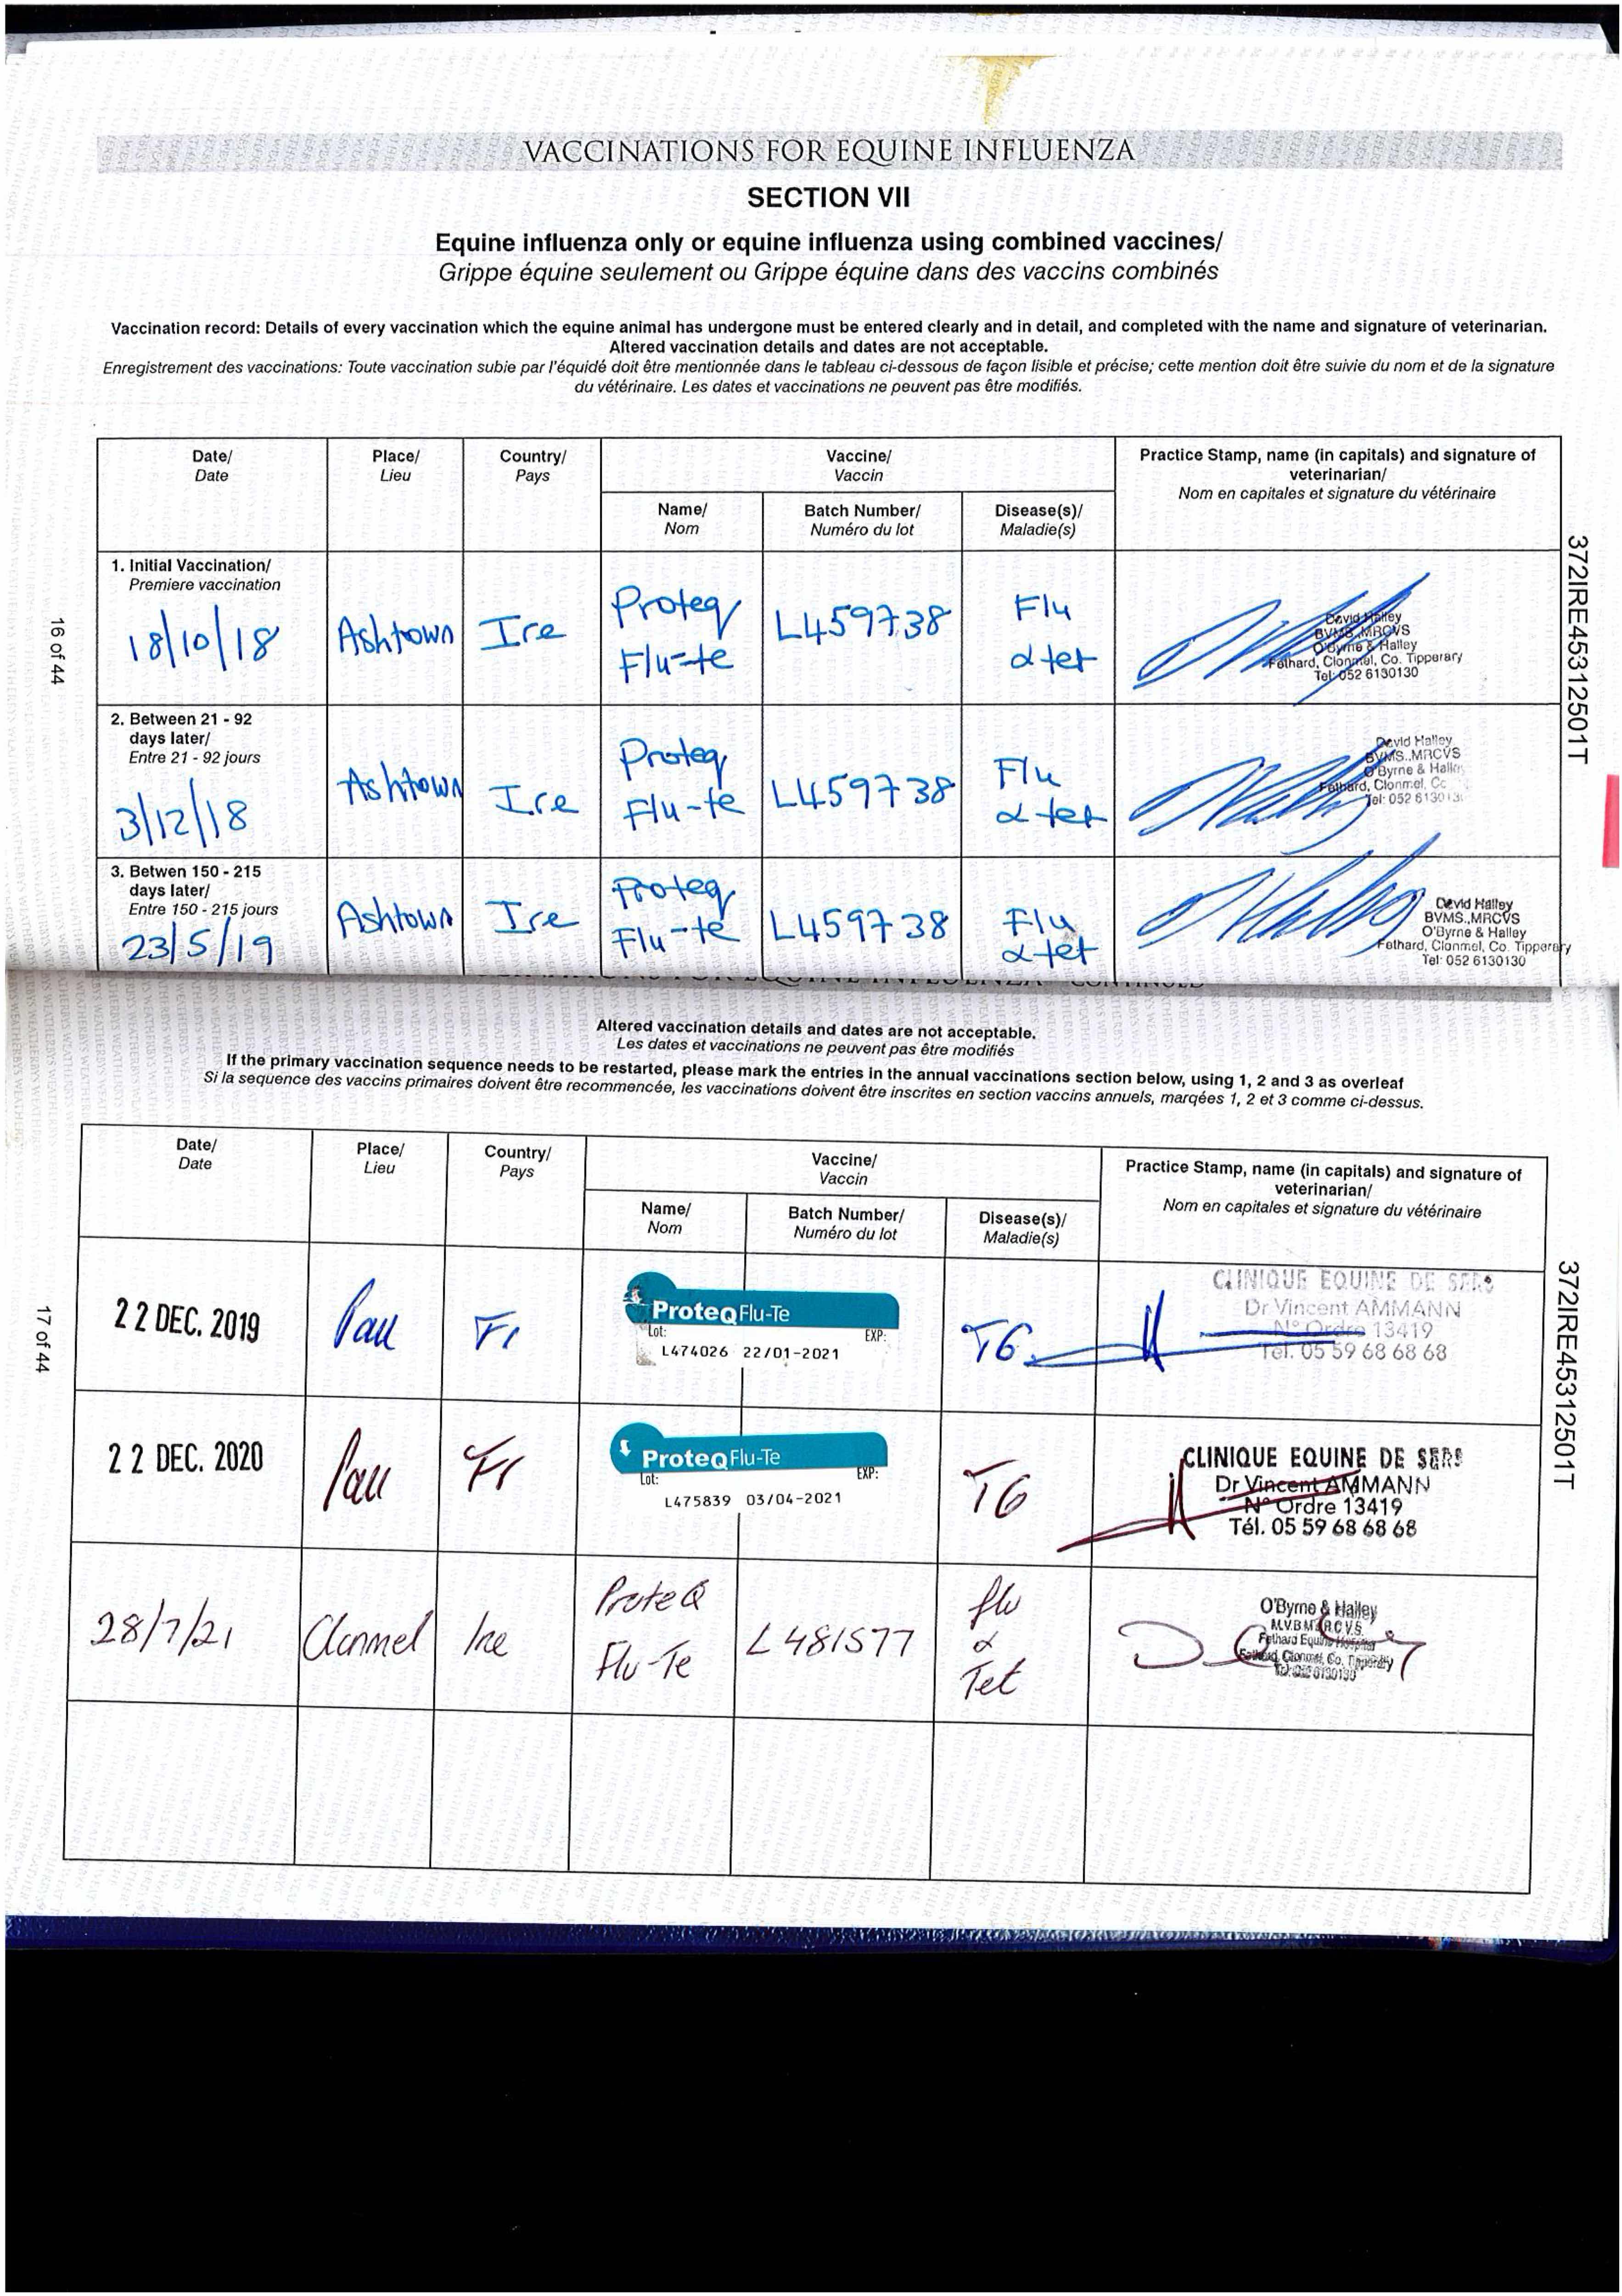 VACCINATIONS FOR EQUINE INFLUENZA
SECTION VII
Equine influenza only or equine influenza using combined vaccines/
Grippe équine seulement ou Grippe équine dans des vaccins combinés
Vaccination record: Details of every vaccination which the equine animal has undergone must be entered clearly and in detail, and completed with the name and signature of veterinarian.
Altered vaccination details and dates are not acceptable.
Enregistrement des vaccinations: Toute vaccination subie par l'équidé doit être mentionnée dans le tableau ci-dessous de façon lisible et précise; cette mention doit être suivie du nom et de la signature
du vétérinaire. Les dates et vaccinations ne peuvent pas être modifiés.
Date/
Date
Place/
Lieu
Country/
Pays
Vaccine/
Vaccin
Name/
Nom
Batch Number/
Numéro du lot
Disease(s)/
Maladie(s)
Practice Stamp, name (in capitals) and signature of
veterinarian/
Nom en capitales et signature du vétérinaire
1. Initial Vaccination/
Premiere vaccination
18/10/18
Ashtown
Ire
Proteq
Flu-te
L459738
Flu
& tet
David Halley
BVMS.,MRCVS
O'Byrne & Halley
Fethard, Clonmel, Co. Tipperary
Tel: 052 6130130
2. Between 21 - 92
days later/
Entre 21 - 92 jours
3/12/18
Ashtown
Ire
Proteq
Flu-te
L459738
Flu
& tet
David Halley
BVMS.,MRCVS
O'Byrne & Halley
Fethard, Clonmel, Co
Tel: 052 613013
3. Betwen 150 - 215
days later/
Entre 150 - 215 jours
23/5/19
Ashtown
Ire
Proteq
Flu-te
L459738
Flu
& tet
David Halley
BVMS.,MRCVS
O'Byrne & Halley
Fethard, Clonmel, Co. Tipperary
Tel: 052 6130130
16 of 44
372IRE45312501T
Altered vaccination details and dates are not acceptable.
Les dates et vaccinations ne peuvent pas être modifiés
If the primary vaccination sequence needs to be restarted, please mark the entries in the annual vaccinations section below, using 1, 2 and 3 as overleaf
Si la sequence des vaccins primaires doivent être recommencée, les vaccinations doivent être inscrites en section vaccins annuels, marqées 1, 2 et 3 comme ci-dessus.
Date/
Date
Place/
Lieu
Country/
Pays
Vaccine/
Vaccin
Name/
Nom
Batch Number/
Numéro du lot
Disease(s)/
Maladie(s)
Practice Stamp, name (in capitals) and signature of
veterinarian/
Nom en capitales et signature du vétérinaire
22 DEC. 2019
Pau
Fr
ProteqFlu-Te
Lot: EXP:
L474026 22/01-2021
TG
CLINIQUE EQUINE DE SERS
Dr Vincent AMMANN
N° Ordre 13419
Tél. 05 59 68 68 68
22 DEC. 2020
Pau
Fr
ProteqFlu-Te
Lot: EXP:
L475839 03/04-2021
TG
CLINIQUE EQUINE DE SERS
Dr Vincent AMMANN
N° Ordre 13419
Tél. 05 59 68 68 68
28/7/21
Clonmel
Ire
ProteQ
Flu-Te
L481577
flu
&
Tet
O'Byrne & Halley
M.V.B M.R.C.V.S.
Fethard Equine Hospital
Fethard, Clonmel, Co. Tipperary
Tel: 052 6130130
17 of 44
372IRE45312501T